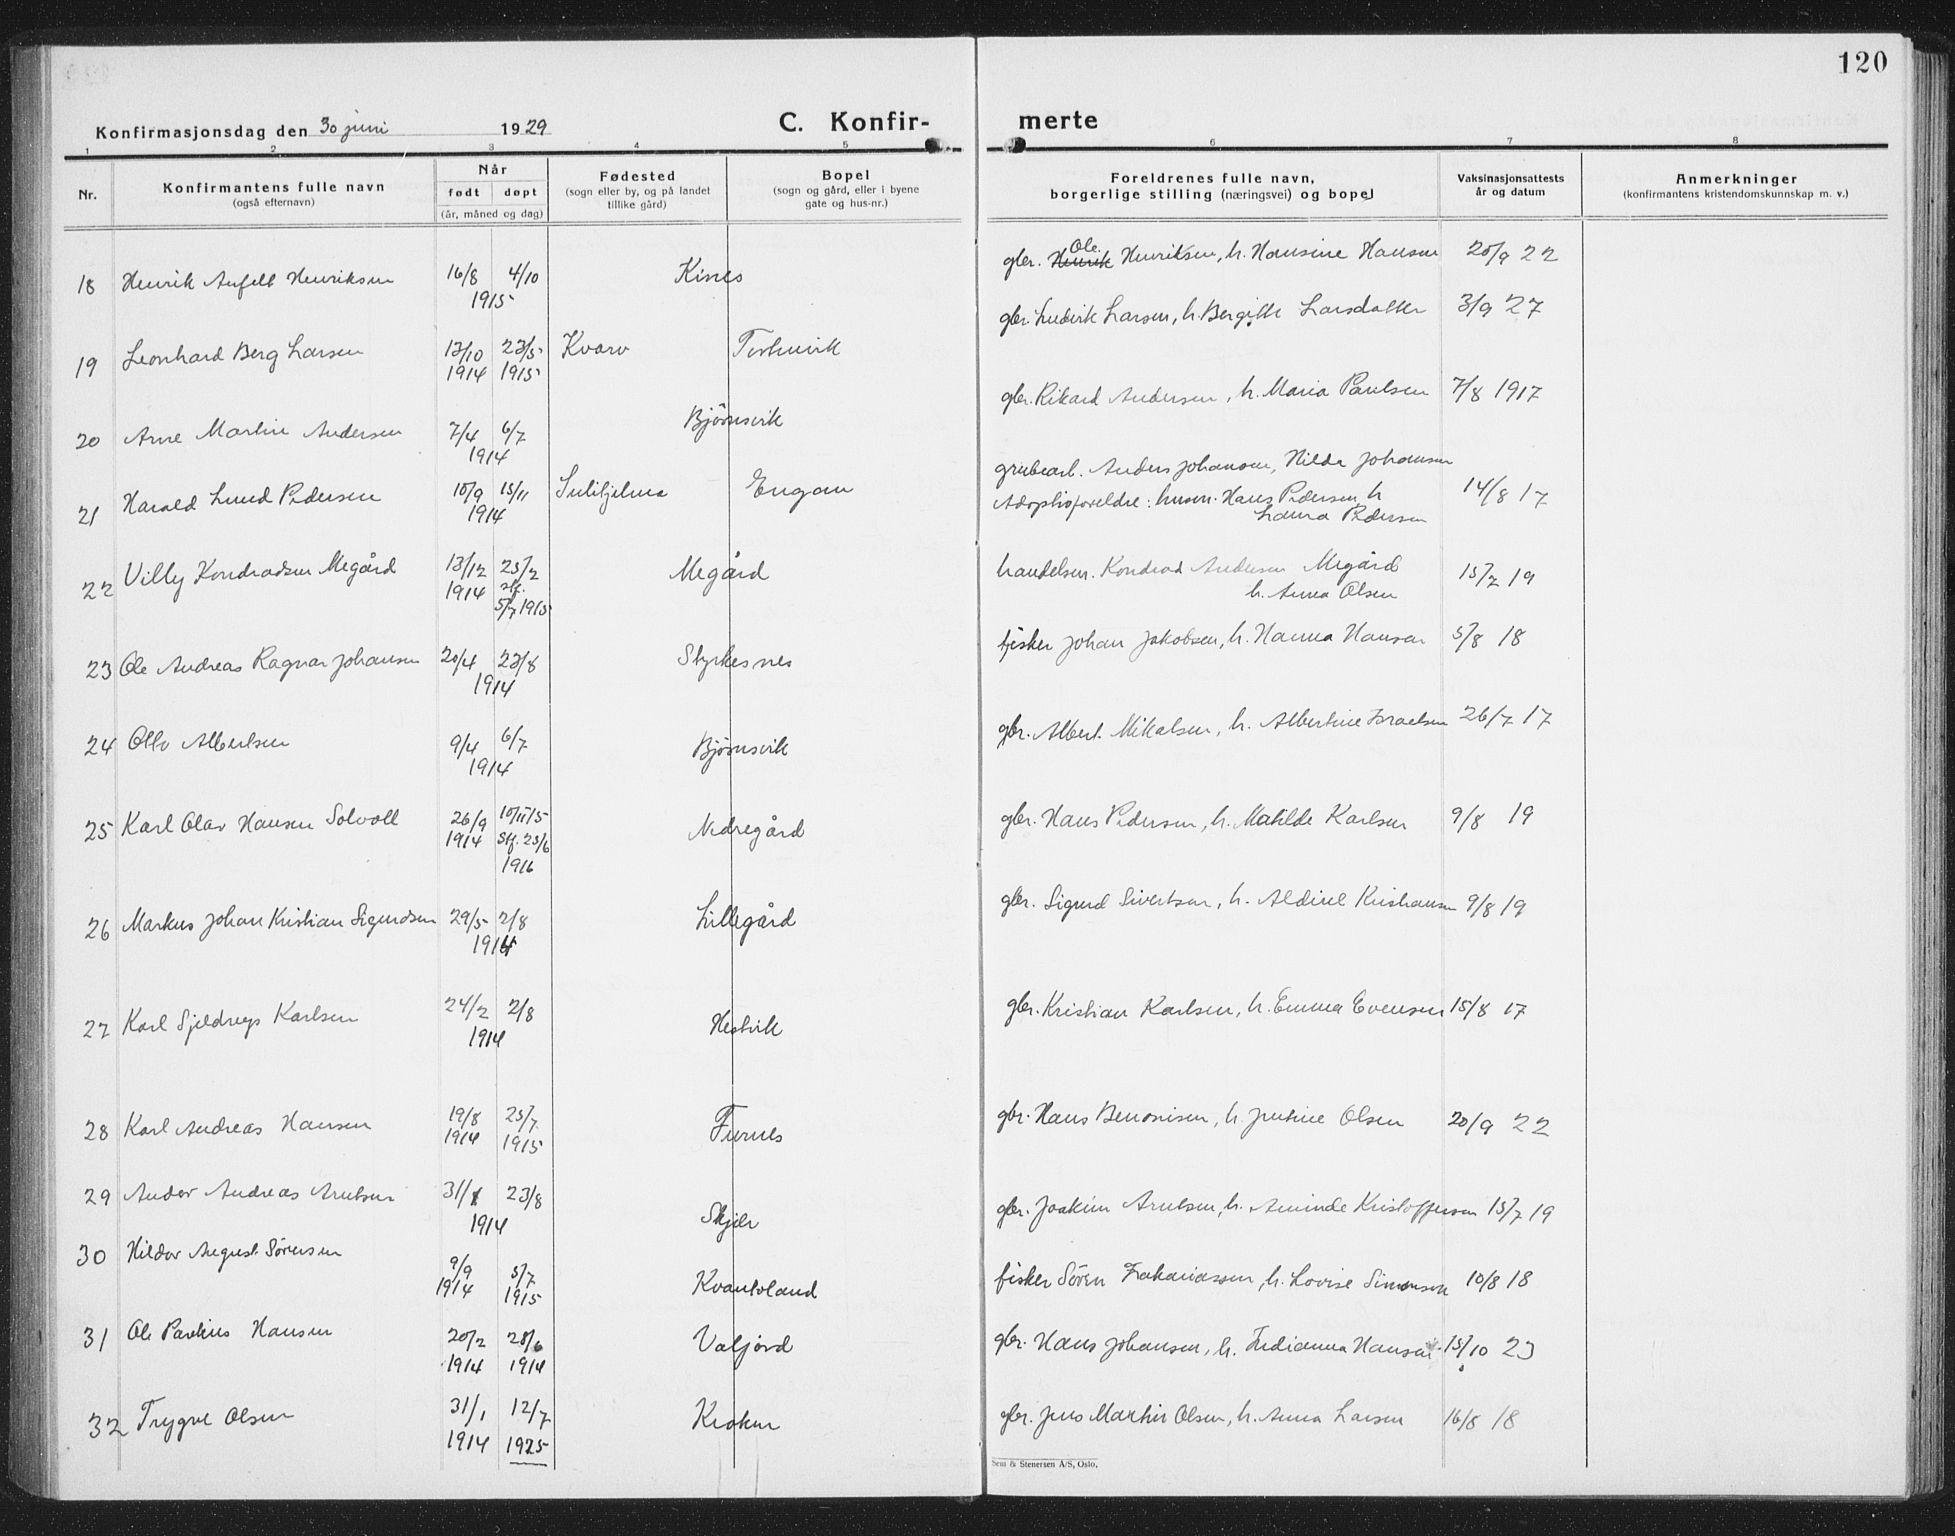 120
Konfirmasjonsdag den 30 juni 1929
C. Konfir- merte
1 2 3 4 5 6 7 8
Nr.
Konfirmantens fulle navn
(også efternavn)
Når
født døpt
(år, måned og dag)
Fødested
(sogn eller by, og på landet
tillike gård)
Bopel
(sogn og gård, eller i byene
gate og hus-nr.)
Foreldrenes fulle navn,
borgerlige stilling (næringsvei) og bopel
Vaksinasjonsattests
år og datum
Anmerkninger
(konfirmantens kristendomskunnskap m. v.)
18 Henrik Anfelt Henriksen 16/8 4/10 1915 Kisnes gbr. Henrik Ole Henriksen, h. Hansine Hansen 20/9 22
19 Leonhard Berg Larsen 13/10 1914 23/5 1915 Kvarv gbr. Ludvik Larsen, h. Bergitte Larsdatter 3/9 27
20 Arne Martin Andersen 7/4 6/7 1914 Bjørnsvik gbr. Rikard Andersen, h. Maria Paulsen 7/8 1917
21 Harald Lund Pedersen 10/9 15/11 1914 Sulitjelma Engan grubearb. Anders Johansen, Hilda Johansen
Adoptivforeldre: husm. Hans Pedersen, h
Laura Pedersen 14/8 17
22 Villy Kondradsen Megård 13/12 1914 25/2 stf. 5/7 1915 Megård handelsm. Kondrad Andersen Megård
h. Anna Olsen 15/2 19
23 Ole Andreas Ragnar Johansen 20/4 23/8 1914 Styrkesnes fisker Johan Jakobsen, h. Hanna Hansen 5/8 18
24 Otto Albertsen 9/4 6/7 1914 Bjørnsvik gbr. Albert Mikalsen, h. Albertine Israelsen 26/7 17
25 Karl Olav Hansen Solvoll 26/9 1914 10/11 15 Stf. 25/6 1916 Nedregård gbr. Hans Pedersen, h. Matilde Karlsen 9/8 19
26 Markus Johan Kristian Sigurdsen 29/5 2/8 1914 Lillegård gbr. Sigurd Sivertsen, h. Kristiansen 9/8 19
27 Karl Karlsen 24/2 2/8 1914 Hestvik gbr. Kristian Karlsen, h. Emma Evensen 15/8 17
28 Karl Andreas Hansen 19/8 1914 25/7 1915 Furnes gbr. Hans Benonisen, h. Justine Olsen 20/9 22
29 Andor Andreas Arntsen 31/1 23/8 1914 gbr. Joakim Arntsen, h. Aminde Kristoffersen 15/7 19
30 Hildor August Sørensen 9/9 1914 5/7 1915 Kvantoland fisker Søren Zakariassen, h. Lovise Simonsen 10/8 18
31 Ole Paulius Hansen 20/2 1914 28/6 1914 Valjord gbr. Hans Johansen, h. Indianna Hansen 15/10 23
32 Trygve Olsen 31/1 1914 12/7 1925 Kroken gbr. Jens Martin Olsen, h. Anna Larsen 16/8 18
Sem & Stenersen A/S, Oslo.